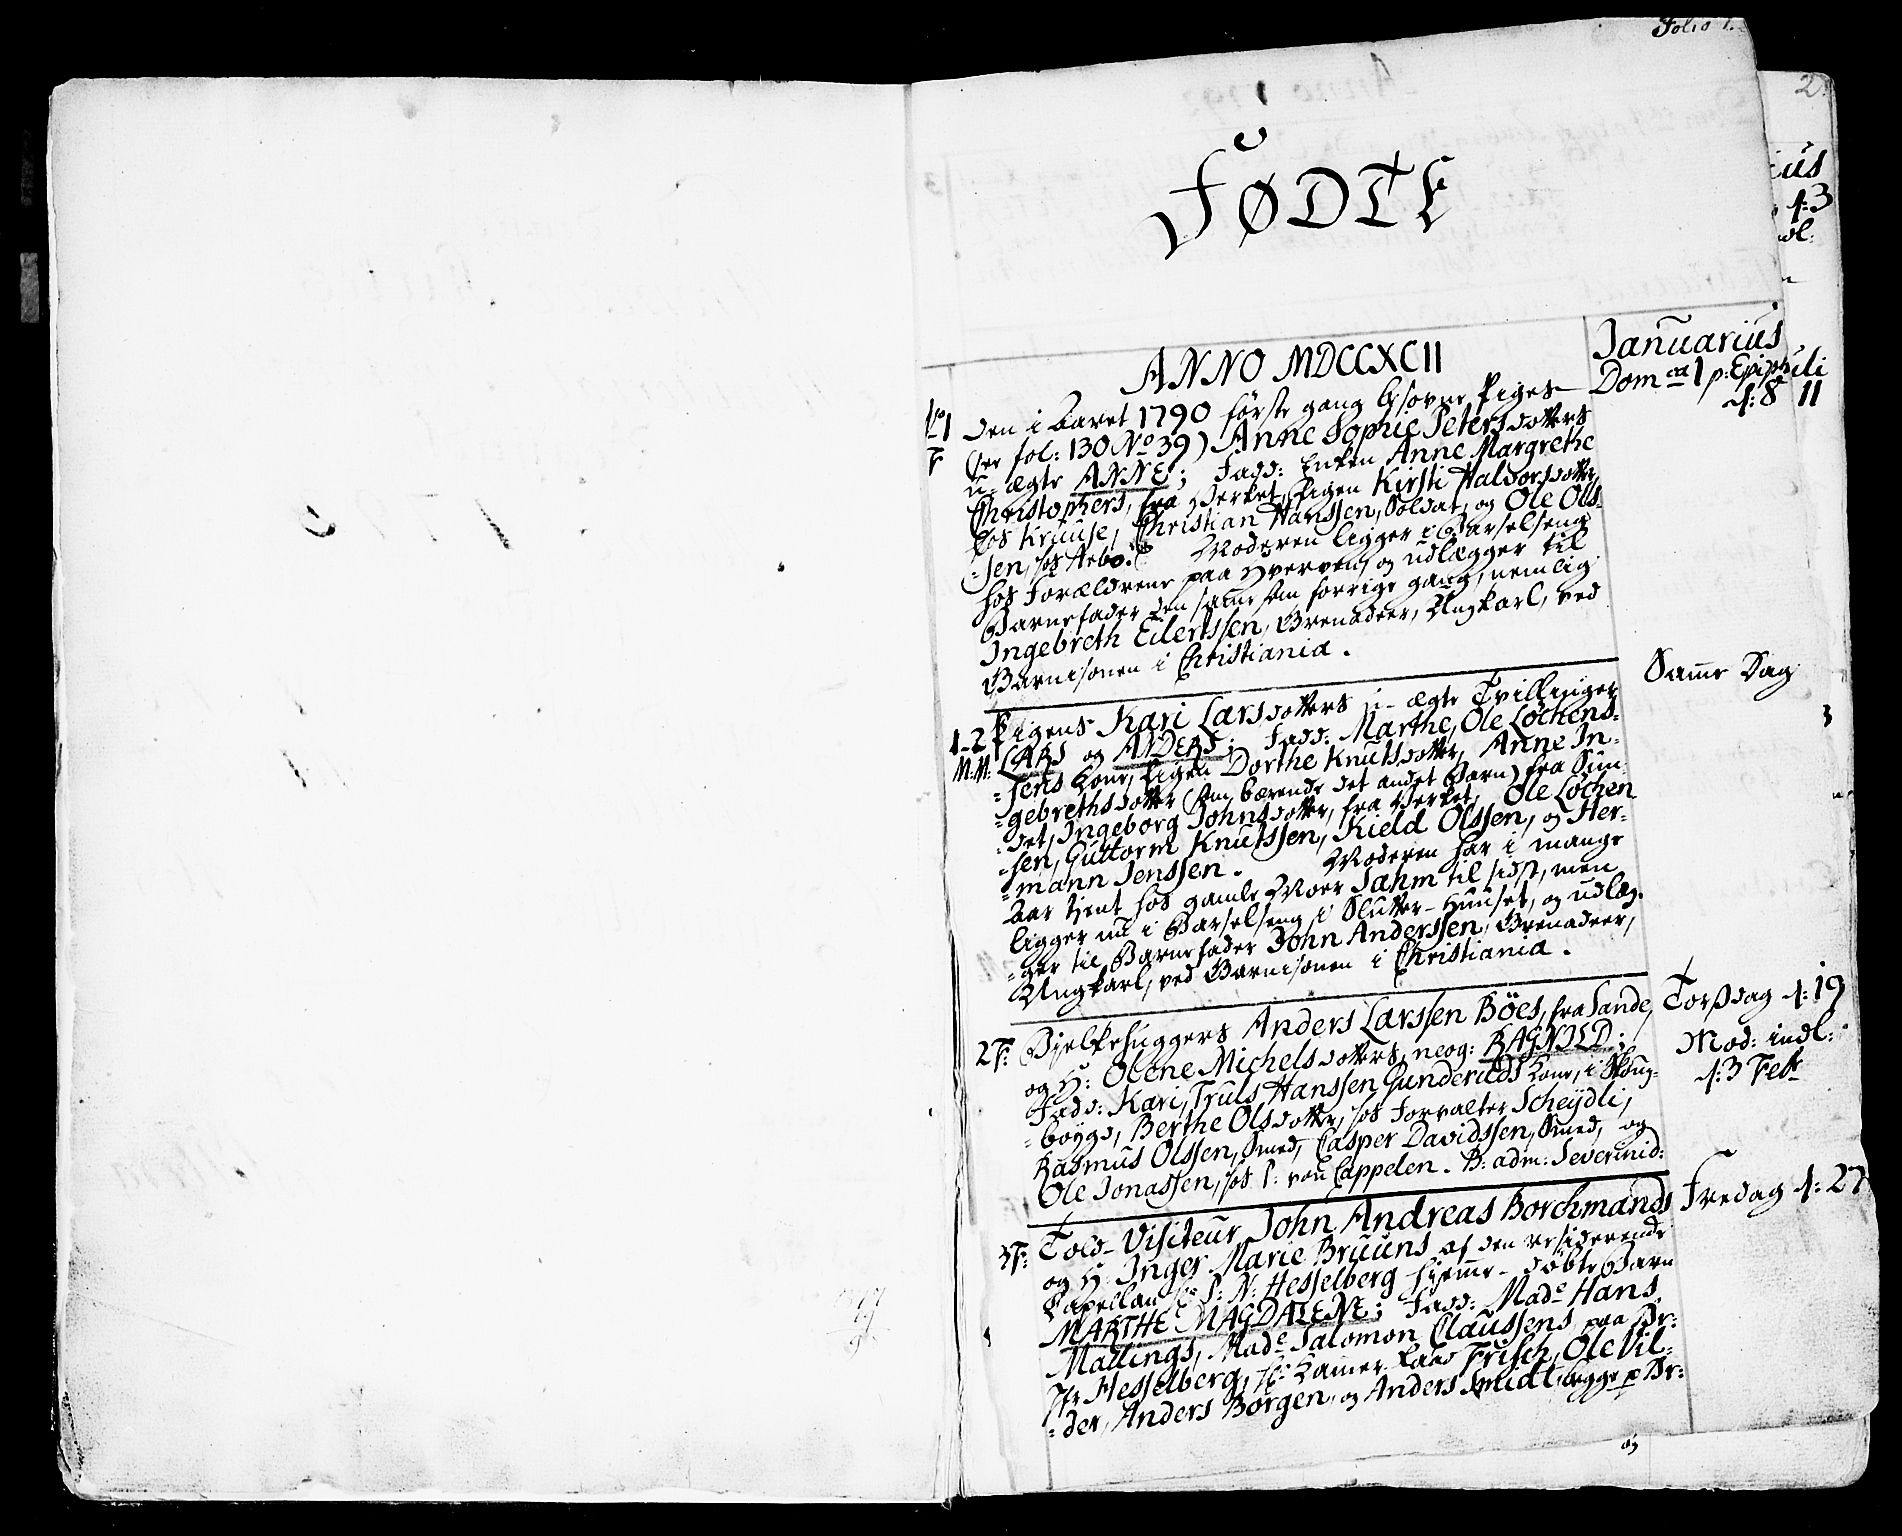 Folio 1.
2.
FØDTE
ANNO MDCCXCII
Januarius
Dom ca 1 p: Epiph:
d: 8
No 1
F
den i Aaret 1790 første gang besovne Piges
(see fol: 130 No 39) Anne Sophie Petersdotters
u-ægte ANNE; Fadd: Enken Anne Margrethe
Christophers, fra Verket, Pigen Kirsti Halvorsdotter,
hos Kruuse, Christian Hanssen, Soldat, og Ole Ols-
-sen, hos Arbo. Moderen ligger i Barselseng
hos Forældrene paa Hverven, og udlægger til
Barnefader den samme som forrige gang, nemlig
Ingebreth Eilertssen, Grenadeer, Ungkarl, ved
Garnisonen i Christiania.
Samme Dag
1-2
M:M:
Pigens Kari Larsdotters u-ægte Tvillinger
LARS og ANDERS; Fadd: Marthe, Ole Løchens-
-sens Kone, Pigen Dorthe Knutsdotter, Anne In-
-gebrethsdotter (som bærende det andet Barn) fra Sun-
-det, Ingeborg Johnsdotter, fra Verket, Ole Løchen
-sen, Guttorm Knutssen, Kield Olssen, og Her-
-mann Jenssen. Moderen har i mange
Aar tjent hos gamle Moer Jahm til sidst, men
ligger nu i Barselseng i Slutter-Huuset, og udlæg-
-ger til Barnefader John Anderssen, Grenadeer,
Ungkarl, ved Garnisonen i Christiania.
Torsdag d: 19
Mod: indl:
d: 3 Febr
2 F:
Bjelkehuggers Anders Larssen Böes, fra Sande,
og H: Olene Michelsdotters, neog: RAGNILD;
Fadd: Kari, Truls Hanssen Gunderuds Kone, i Skoug-
-boygd, Berthe Olsdotter, hos Forvalter Scheydli,
Rasmus Olssen, Smed, Casper Davidssen, Smed, og
Ole Jonassen, hos P: von Cappelen. B: adm: Severinid:
Fredag d: 27
3 F:
Told-Visiteur John Andreas Borchmands
og H: Inger Marie Bruuns af den residerende
Capellan Hr P: N: Hesselberg hjemme-døbte Barn
MARTHE MAGDALENE; Fadd: Made Hans
Mallings, Made Salomon Claussens paa Br:
Jfr Hesselberg, Hr: Kammer-Raad Frisch, Ole Vil-
-der, Anders Borgen, og Anders Smidt, begge p Br:
og